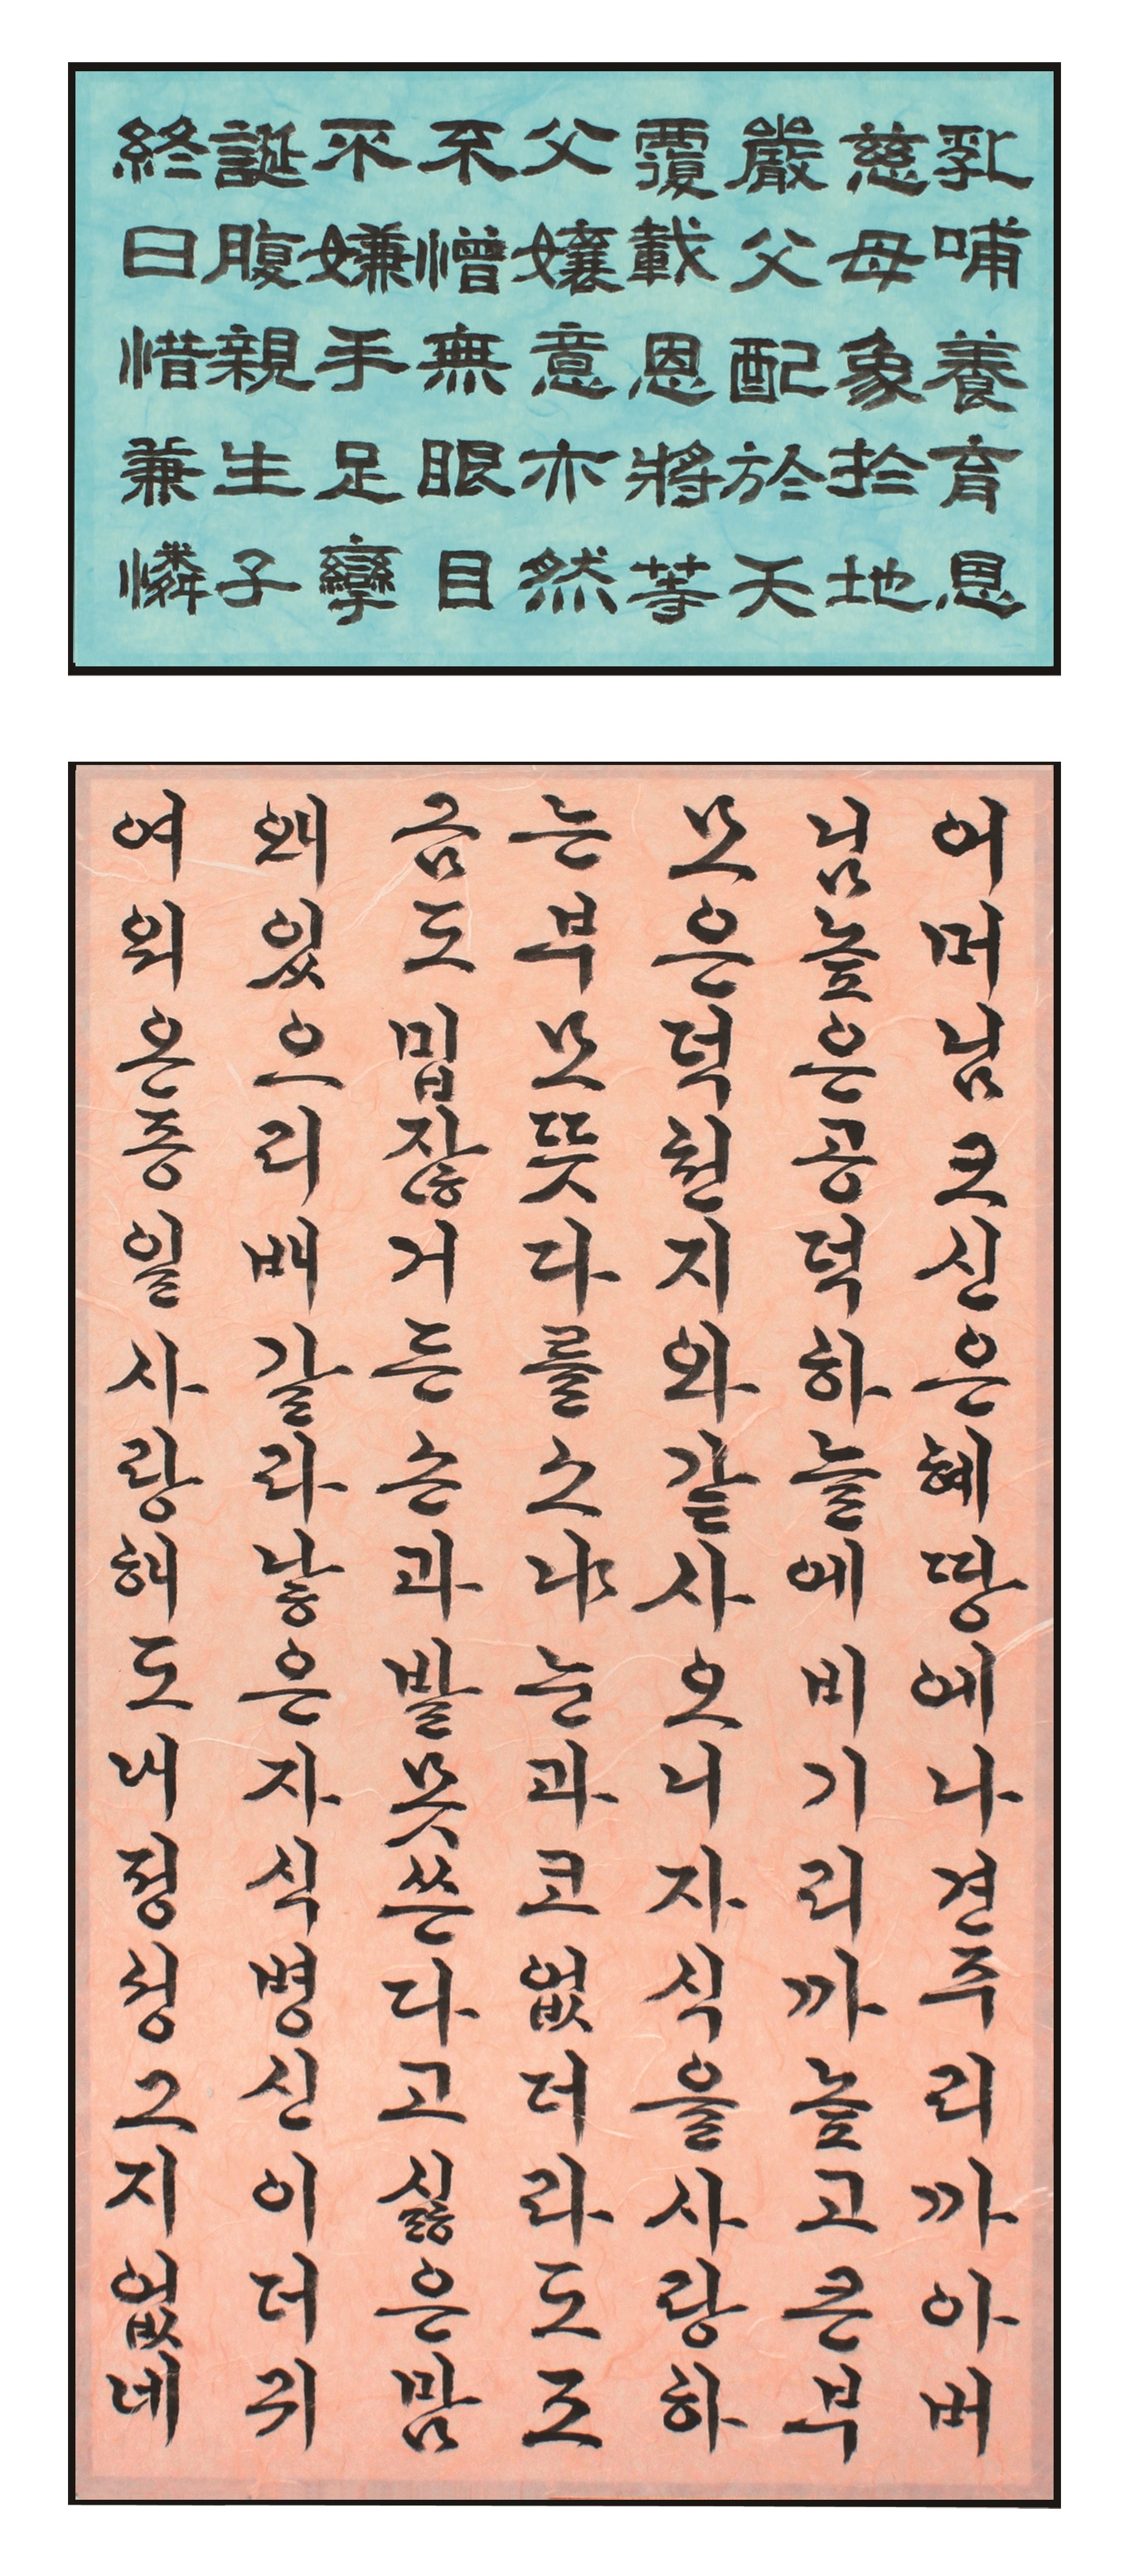 乳哺養育恩
慈母象於地
嚴父配於天
覆載恩將等
父孃意亦然
不憎無眼目
不嫌手足攣
誕腹親生子
終日惜兼憐
어머님크신은혜땅에나견주리까아버
님높은공덕하늘에비기리까높고큰부
모은덕천지와같사오니자식을사랑하
는부모뜻다를소냐눈과코없더라도조
금도밉잖거든손과발못쓴다고싫은맘
왜있으리배갈라낳은자식병신이더귀
여외온종일사랑해도내정성그지없네